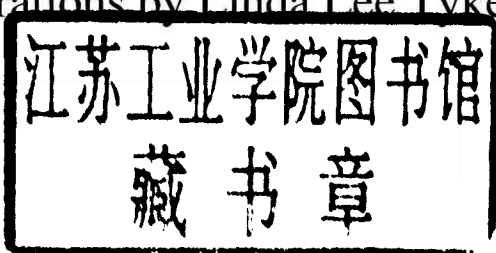 by Linda Lee
江苏工业学院图书馆
藏书章